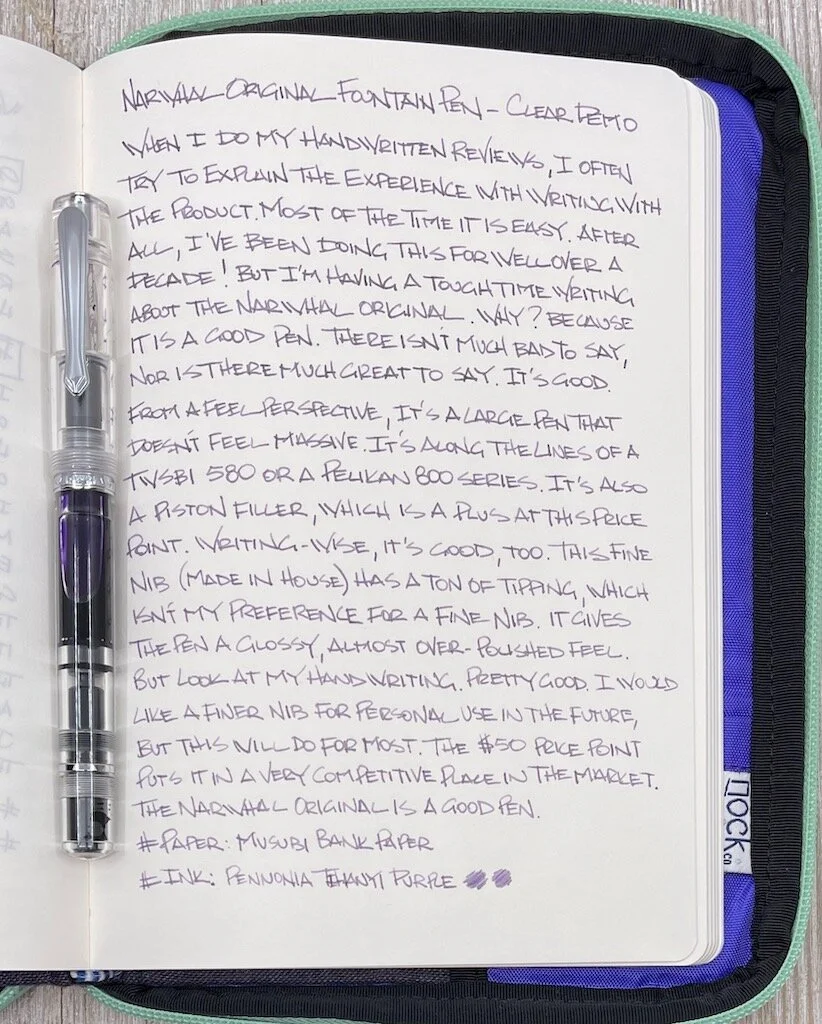 NARWHAL ORIGINAL FOUNTAIN PEN – CLEAR DEMO
WHEN I DO MY HANDWRITTEN REVIEWS, I OFTEN
TRY TO EXPLAIN THE EXPERIENCE WITH WRITING WITH
THE PRODUCT. MOST OF THE TIME IT IS EASY. AFTER
ALL, I'VE BEEN DOING THIS FOR WELL OVER A
DECADE! BUT I'M HAVING A TOUGH TIME WRITING
ABOUT THE NARWHAL ORIGINAL. WHY? BECAUSE
IT IS A GOOD PEN. THERE ISN'T MUCH BAD TO SAY,
NOR IS THERE MUCH GREAT TO SAY. IT'S GOOD.
FROM A FEEL PERSPECTIVE, IT'S A LARGE PEN THAT
DOESN'T FEEL MASSIVE. IT'S ALONG THE LINES OF A
TWSBI 580 OR A PELIKAN 800 SERIES. IT'S ALSO
A PISTON FILLER, WHICH IS A PLUS AT THIS PRICE
POINT. WRITING-WISE, IT'S GOOD, TOO. THIS FINE
NIB (MADE IN HOUSE) HAS A TON OF TIPPING, WHICH
ISN'T MY PREFERENCE FOR A FINE NIB. IT GIVES
THE PEN A GLOSSY, ALMOST OVER-POLISHED FEEL.
BUT LOOK AT MY HANDWRITING. PRETTY GOOD. I WOULD
LIKE A FINER NIB FOR PERSONAL USE IN THE FUTURE,
BUT THIS WILL DO FOR MOST. THE $50 PRICE POINT
PUTS IT IN A VERY COMPETITIVE PLACE IN THE MARKET.
THE NARWHAL ORIGINAL IS A GOOD PEN.
#PAPER: MUSUBI BANK PAPER
#INK: PENNONIA TIHANYI PURPLE
NOCK
CO